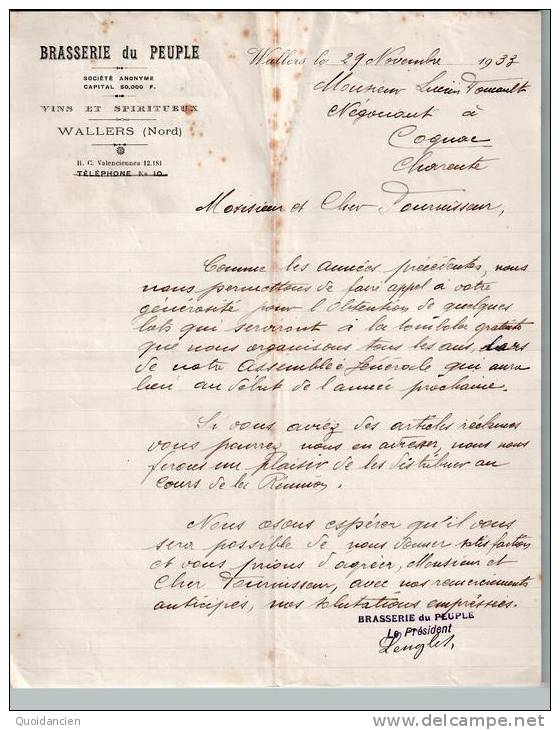 BRASSERIE du PEUPLE
SOCIÉTÉ ANONYME
CAPITAL 50.000 F.
VINS ET SPIRITUEUX
WALLERS (Nord)
R. C. Valenciennes 12.181
TÉLÉPHONE No 10
Wallers le 29 Novembre 1933
Monsieur Lucien
Négociant à
Cognac
Charente
Monsieur et Cher Fournisseur,
Comme les années précédentes, nous
nous permettons de faire appel à votre
générosité pour l'obtention de quelques
lots qui serviront à la tombola gratuite
que nous organisons tous les ans, lors
de notre Assemblée Générale qui aura
lieu au début de l'année prochaine.
Si vous aviez des articles réclames
vous pourrez nous en adresser, nous nous
ferons un plaisir de les distribuer au
cours de la Réunion.
Nous osons espérer qu'il vous
sera possible de nous donner satisfaction
et vous prions d'agréer, Monsieur et
Cher Fournisseur, avec nos remerciements
anticipés, nos salutations empressées.
BRASSERIE du PEUPLE
Le Président
Lenglet
Quoidancien
http://www.delcampe.net